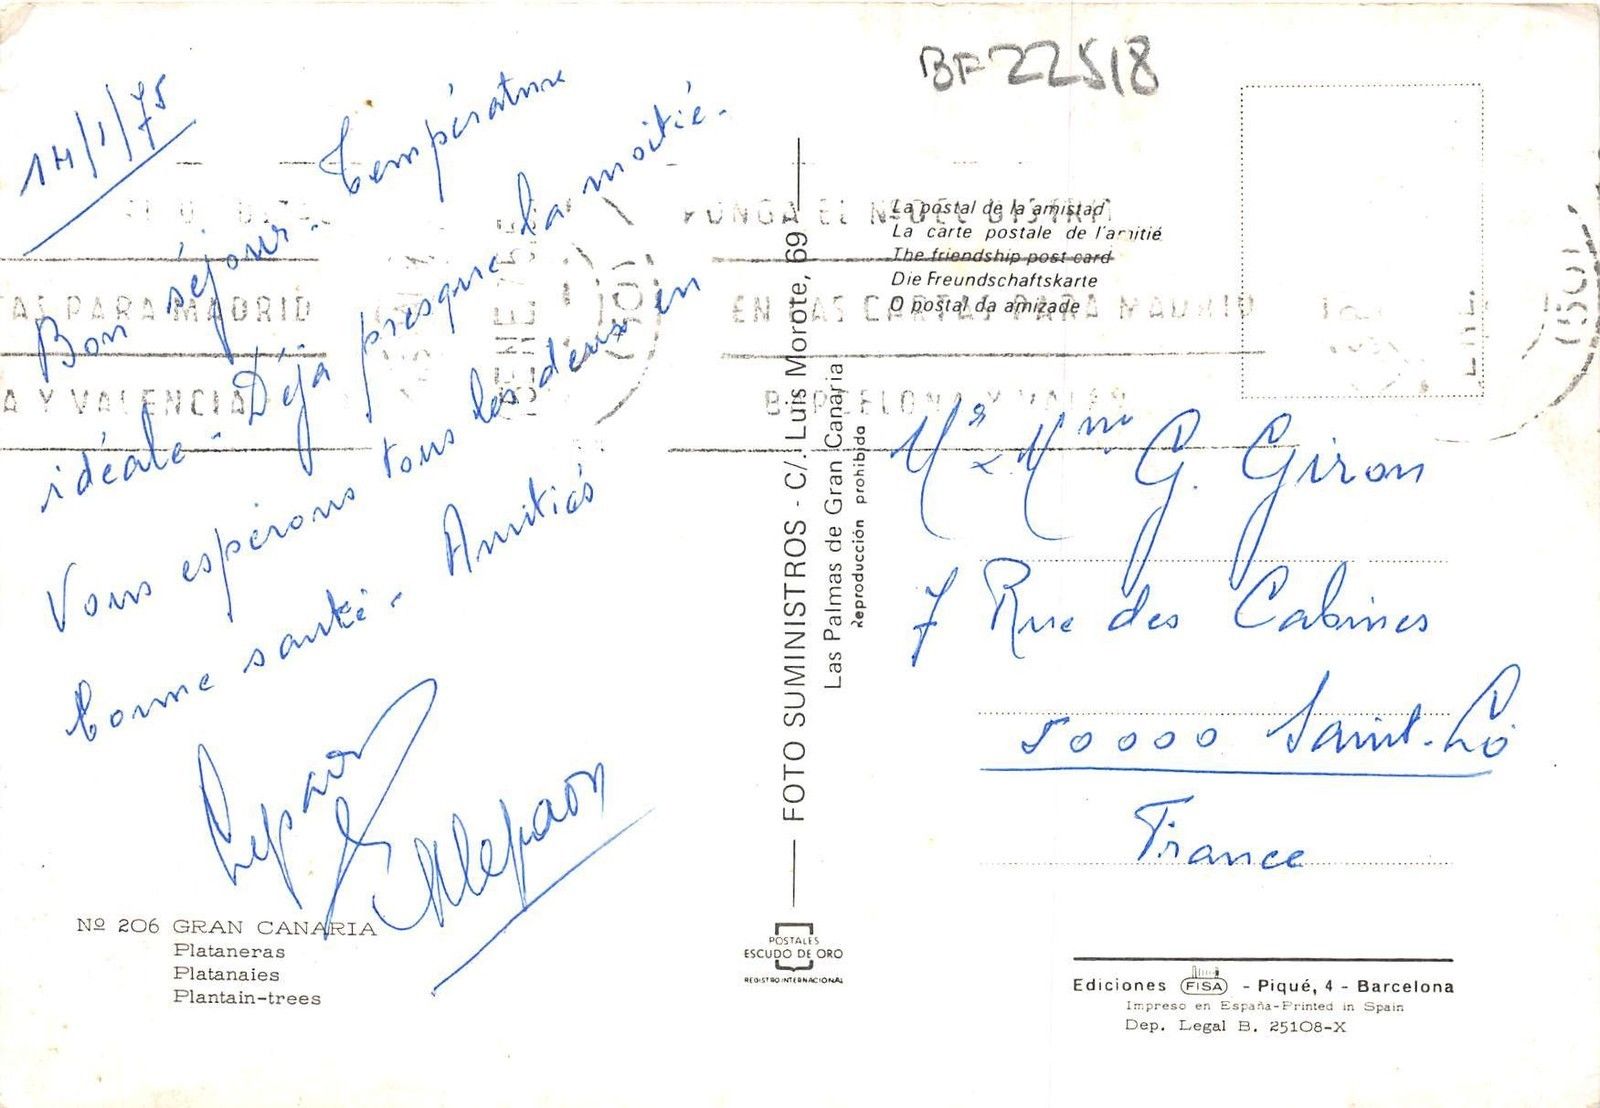 BF 22518
14/1/75
Bon séjour - Température
idéale - Déjà presque la moitié -
Vous espérons tous les deux en
bonne santé - Amitiés
Nº 206 GRAN CANARIA
Plataneras
Platanaies
Plantain-trees
FOTO SUMINISTROS - C/. Luis Morote, 69
Las Palmas de Gran Canaria
Reproducción prohibida
POSTALES
ESCUDO DE ORO
REGISTRO INTERNACIONAL
La postal de la amistad
La carte postale de l'amitié
The friendship post card
Die Freundschaftskarte
O postal da amizade
PONGA EL Nº DEL DISTRI
EN LAS CARTAS PARA MADRID
BARCELONA Y VALEN
TAS PARA MADRID
A Y VALENCIA
Mr & Mme G. Giron
7 Rue des Cabines
50000 Saint-Lô
France
Ediciones FISA - Piqué, 4 - Barcelona
Impreso en España-Printed in Spain
Dep. Legal B. 25108-X